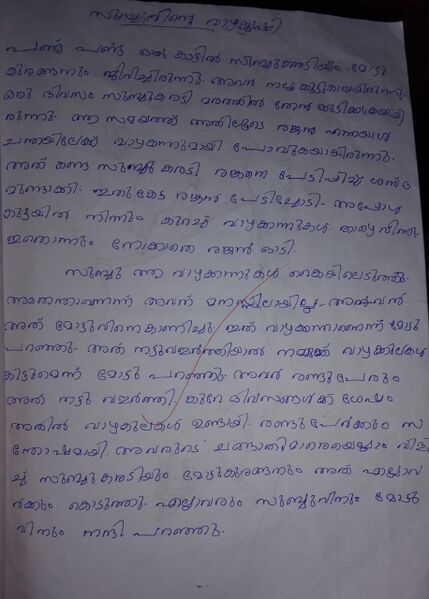 സുബ്ബുവിന്റെ വാഴകൃഷി
പണ്ട് പണ്ട് ഒരു കാട്ടിൽ സിമ്പുകരടിയും മോട്ടു
കുരങ്ങനും ജീവിച്ചിരുന്നു. അവർ നല്ല കൂട്ടുകാരായിരുന്നു.
ഒരു ദിവസം സുബ്ബുകരടി മരത്തിൽ തേൻ കുടിക്കുകയായി
രുന്നു. ആ സമയത്ത് അതിലൂടെ രജൻ എന്നയാൾ
ചന്തയിലേക്ക് വാഴകന്നുമായി പോവുകയായിരുന്നു.
അത് കണ്ട സുബ്ബു കരടി രജനെ പേടിപ്പിച്ച് ശബ്ദ
മുണ്ടാക്കി. ഇതുകേട്ട രജൻ പേടിച്ചോടി. അപ്പോൾ
കുട്ടയിൽ നിന്നും കുറച്ച് വാഴകന്നുകൾ താഴെ വീണു.
ഇതൊന്നും നോക്കാതെ രജൻ ഓടി.
സുബ്ബു ആ വാഴകന്നുകൾ കൈയിലെടുത്തു.
അതെന്താണെന്ന് അവന് മനസ്സിലായില്ല. അവൻ
അത് മോട്ടുവിനെകാണിച്ചു. ഇത് വാഴകന്നാണെന്ന് മോട്ടു
പറഞ്ഞു. അത് നട്ടുവളർത്തിയാൽ നമുക്ക് വാഴക്കുലകൾ
കിട്ടുമെന്ന് മോട്ടു പറഞ്ഞു. അവർ രണ്ടുപേരും
അത് നട്ടു വളർത്തി. കുറേ ദിവസങ്ങൾക്ക് ശേഷം
അതിൽ വാഴകുലകൾ ഉണ്ടായി. രണ്ടുപേർക്കും സ
ന്തോഷമായി. അവരുടെ ചങ്ങാതിമാരെയെല്ലാം വിളി
ച്ച് സുബ്ബുകരടിയും മോട്ടുകുരങ്ങനും അത് എല്ലാവ
ർക്കും കൊടുത്തു. എല്ലാവരും സുബ്ബുവിനും മോട്ടു
വിനും നന്ദി പറഞ്ഞു.